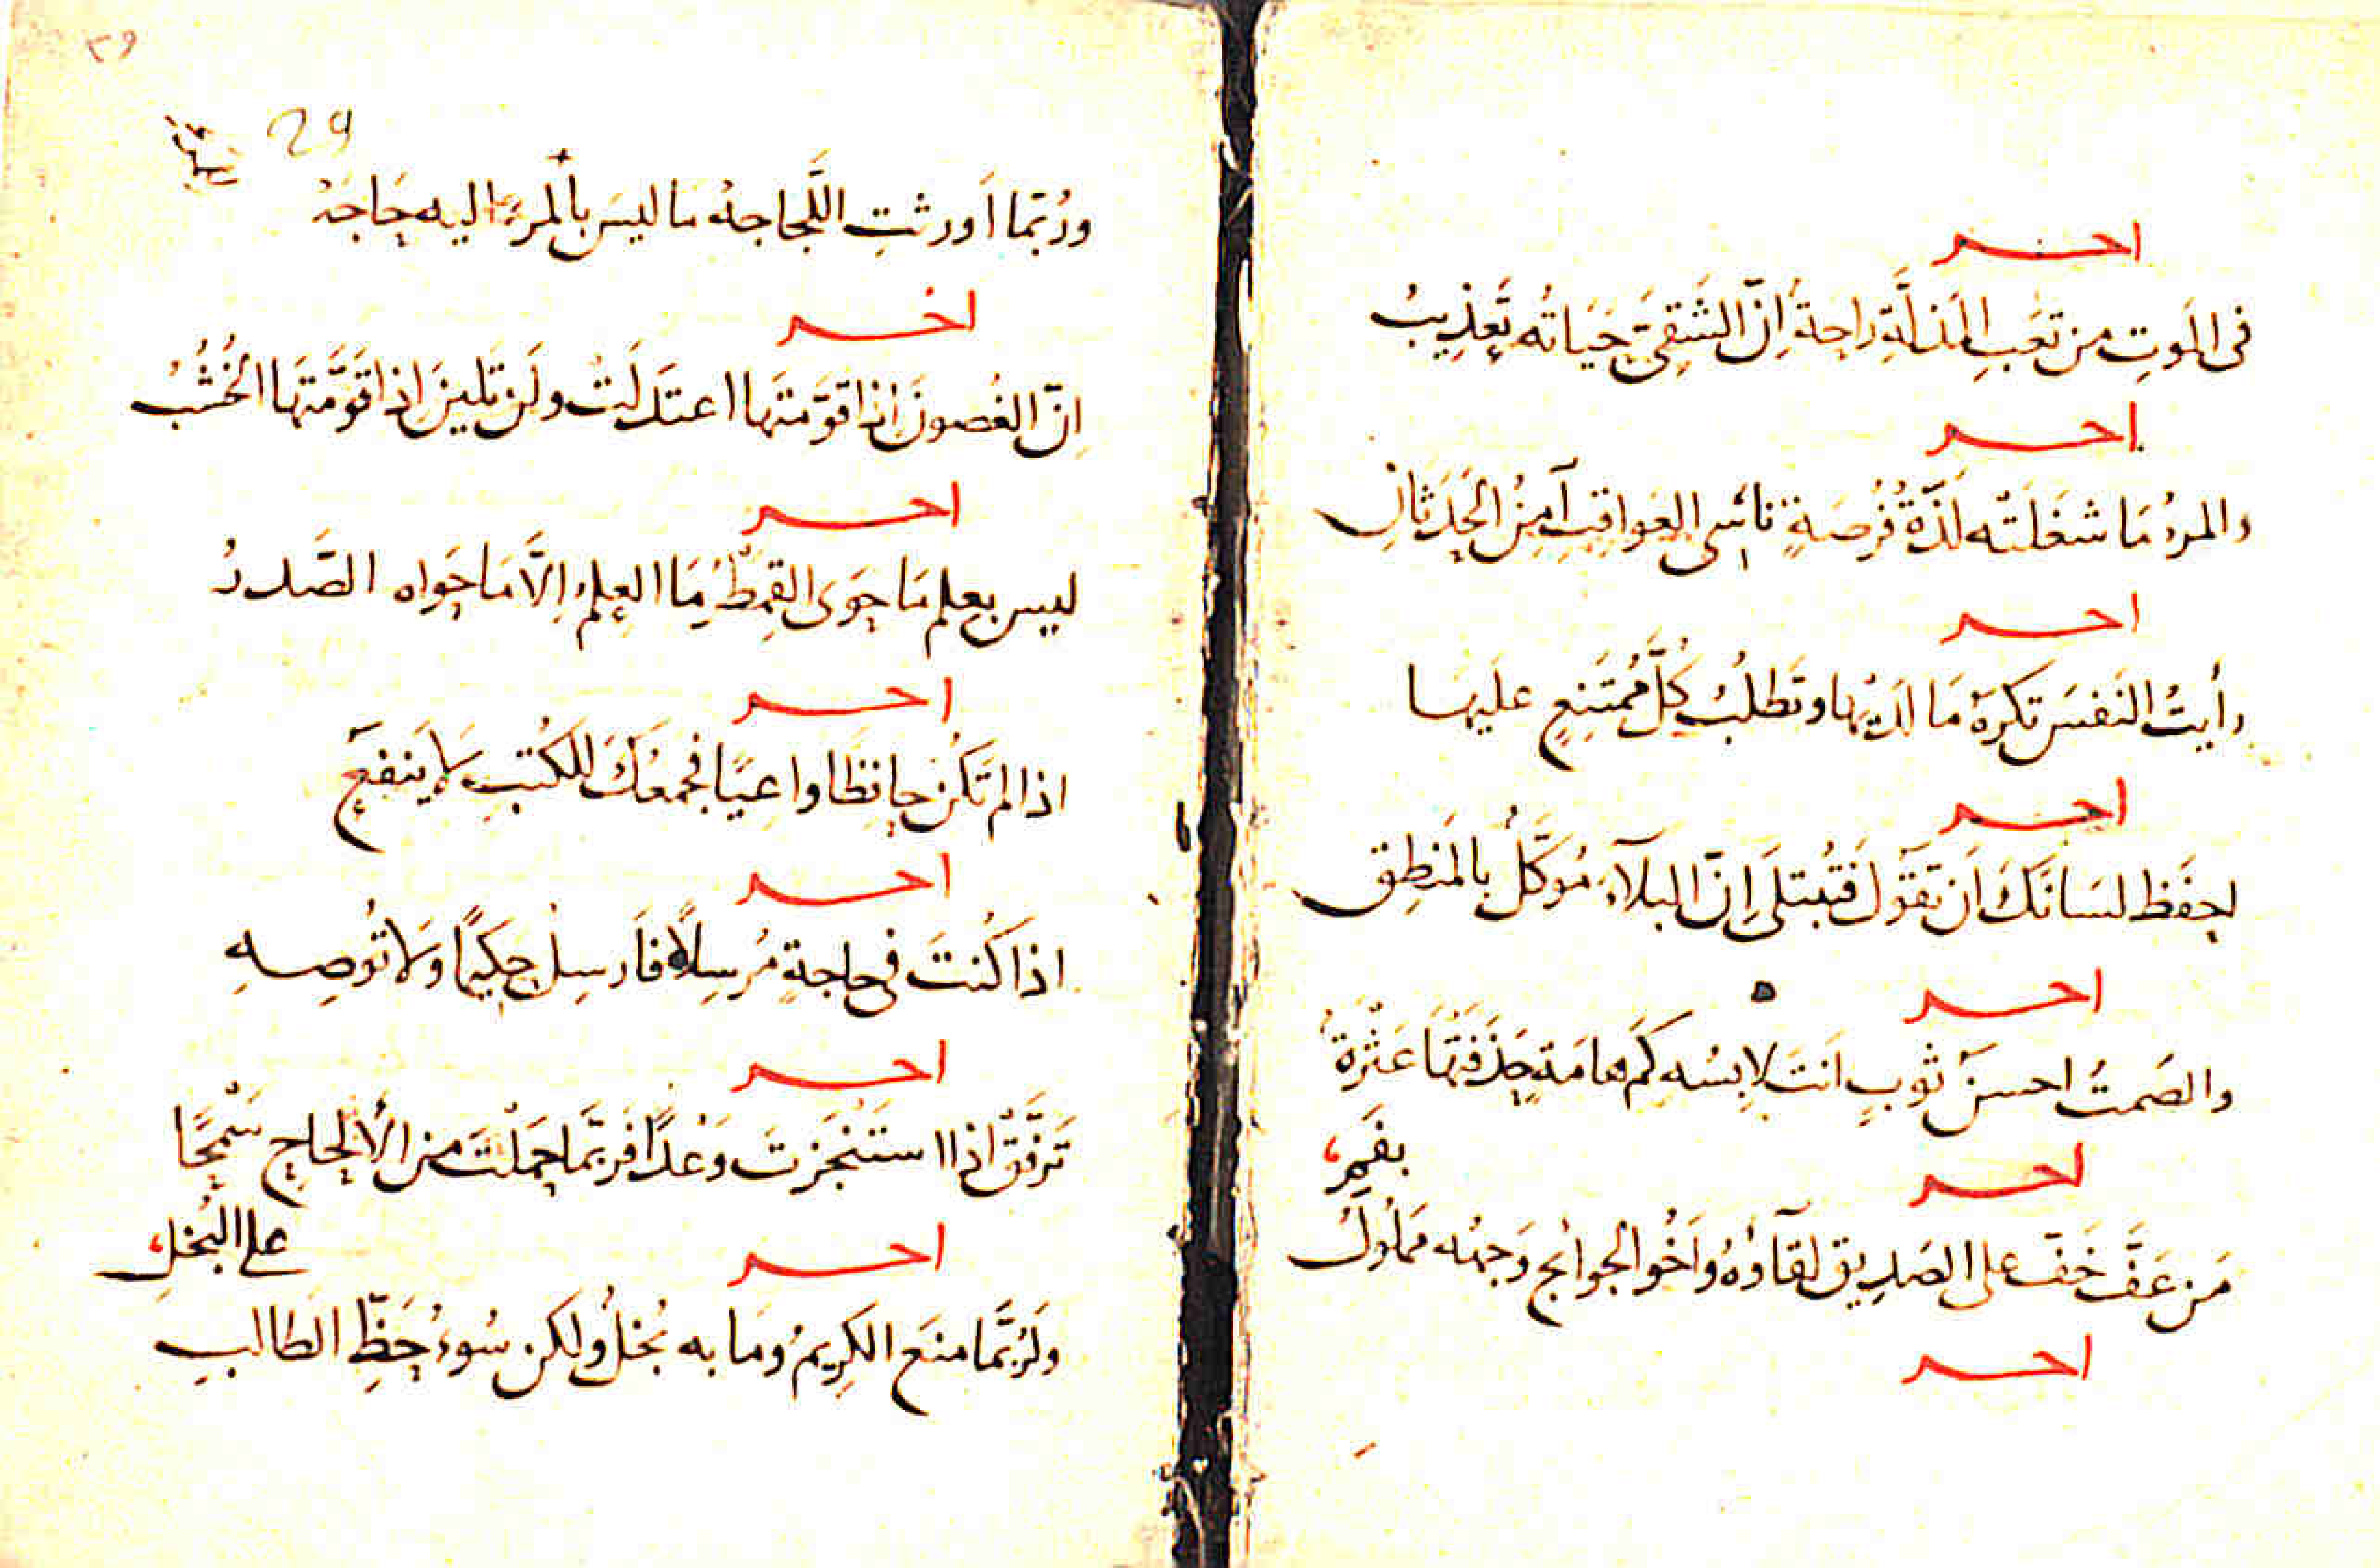 اخر
فى المَوتِ من تعَبِ المَذلَّةِ رَاحةٌ اِنَّ الشَقِىَّ حَيَاتُه تَعذِيبُ
اخر
والمرءُ مَا شغَلَتْه لَذَّةُ فُرصَةٍ ناسِى العَواقِبِ آمِنُ الحَدَثانِ
اخر
رأيتُ النَفسَ تكرهُ مَا لدَيْها وتَطلُبُ كُلَّ مُمتَنِعٍ علَيها
اخر
احفَظ لسَانَكَ اَن تَقُولَ فتُبتلَى اِنَّ البَلآءَ مُوَكَّلٌ بالمَنطِق
اخر
والصَمتُ احسنُ ثوبٍ اَنتَ لابِسُه كَم هامَةٍ حَذفَتْهَا عَثْرَةٌ
بفَمِ
اخر
مَن عَفَّ خَفَّ على الصَدِيقِ لقآوُهُ وَاَخُو الحوائجِ وَجهُه مَملُولُ
اخر
٢٩
29
ورُبّمَا اَورثتِ اللَّجَاجهُ مَا ليسَ بالمرءِ اليه حَاجَهْ
اخر
اِنّ الغُصونَ اِذا قوّمتَها اعتدَلَتْ ولَن تَلينَ اِذا قَوَّمتَهَا الخُشُبُ
اخر
ليس بعِلم مَا حوَى القِمَطْرُ مَا العِلمُ اِلاَّ مَا حَواه الصَّدرُ
اخر
اذا لم تَكُن حافِظًا واعِيًا فجمعُكَ للكُتبِ لاَ يَنفعُ
اخر
اذا كُنتَ فى حاجةٍ مُرسِلاً فاَرسِلْ حَكِيمًا وَلاَ تُوصِهِ
اخر
تَرَفَّقْ اذا استَنْجَزتَ وَعْدًا فرُبّمَا حَمَلْتَ من الاُلحاحِ سَمْحًا
على البُخلِ
اخر
ولَرُبَّمَا منَع الكرِيمُ ومَا به بُخلٌ ولكن سُوءُ حَظِّ الطالبِ